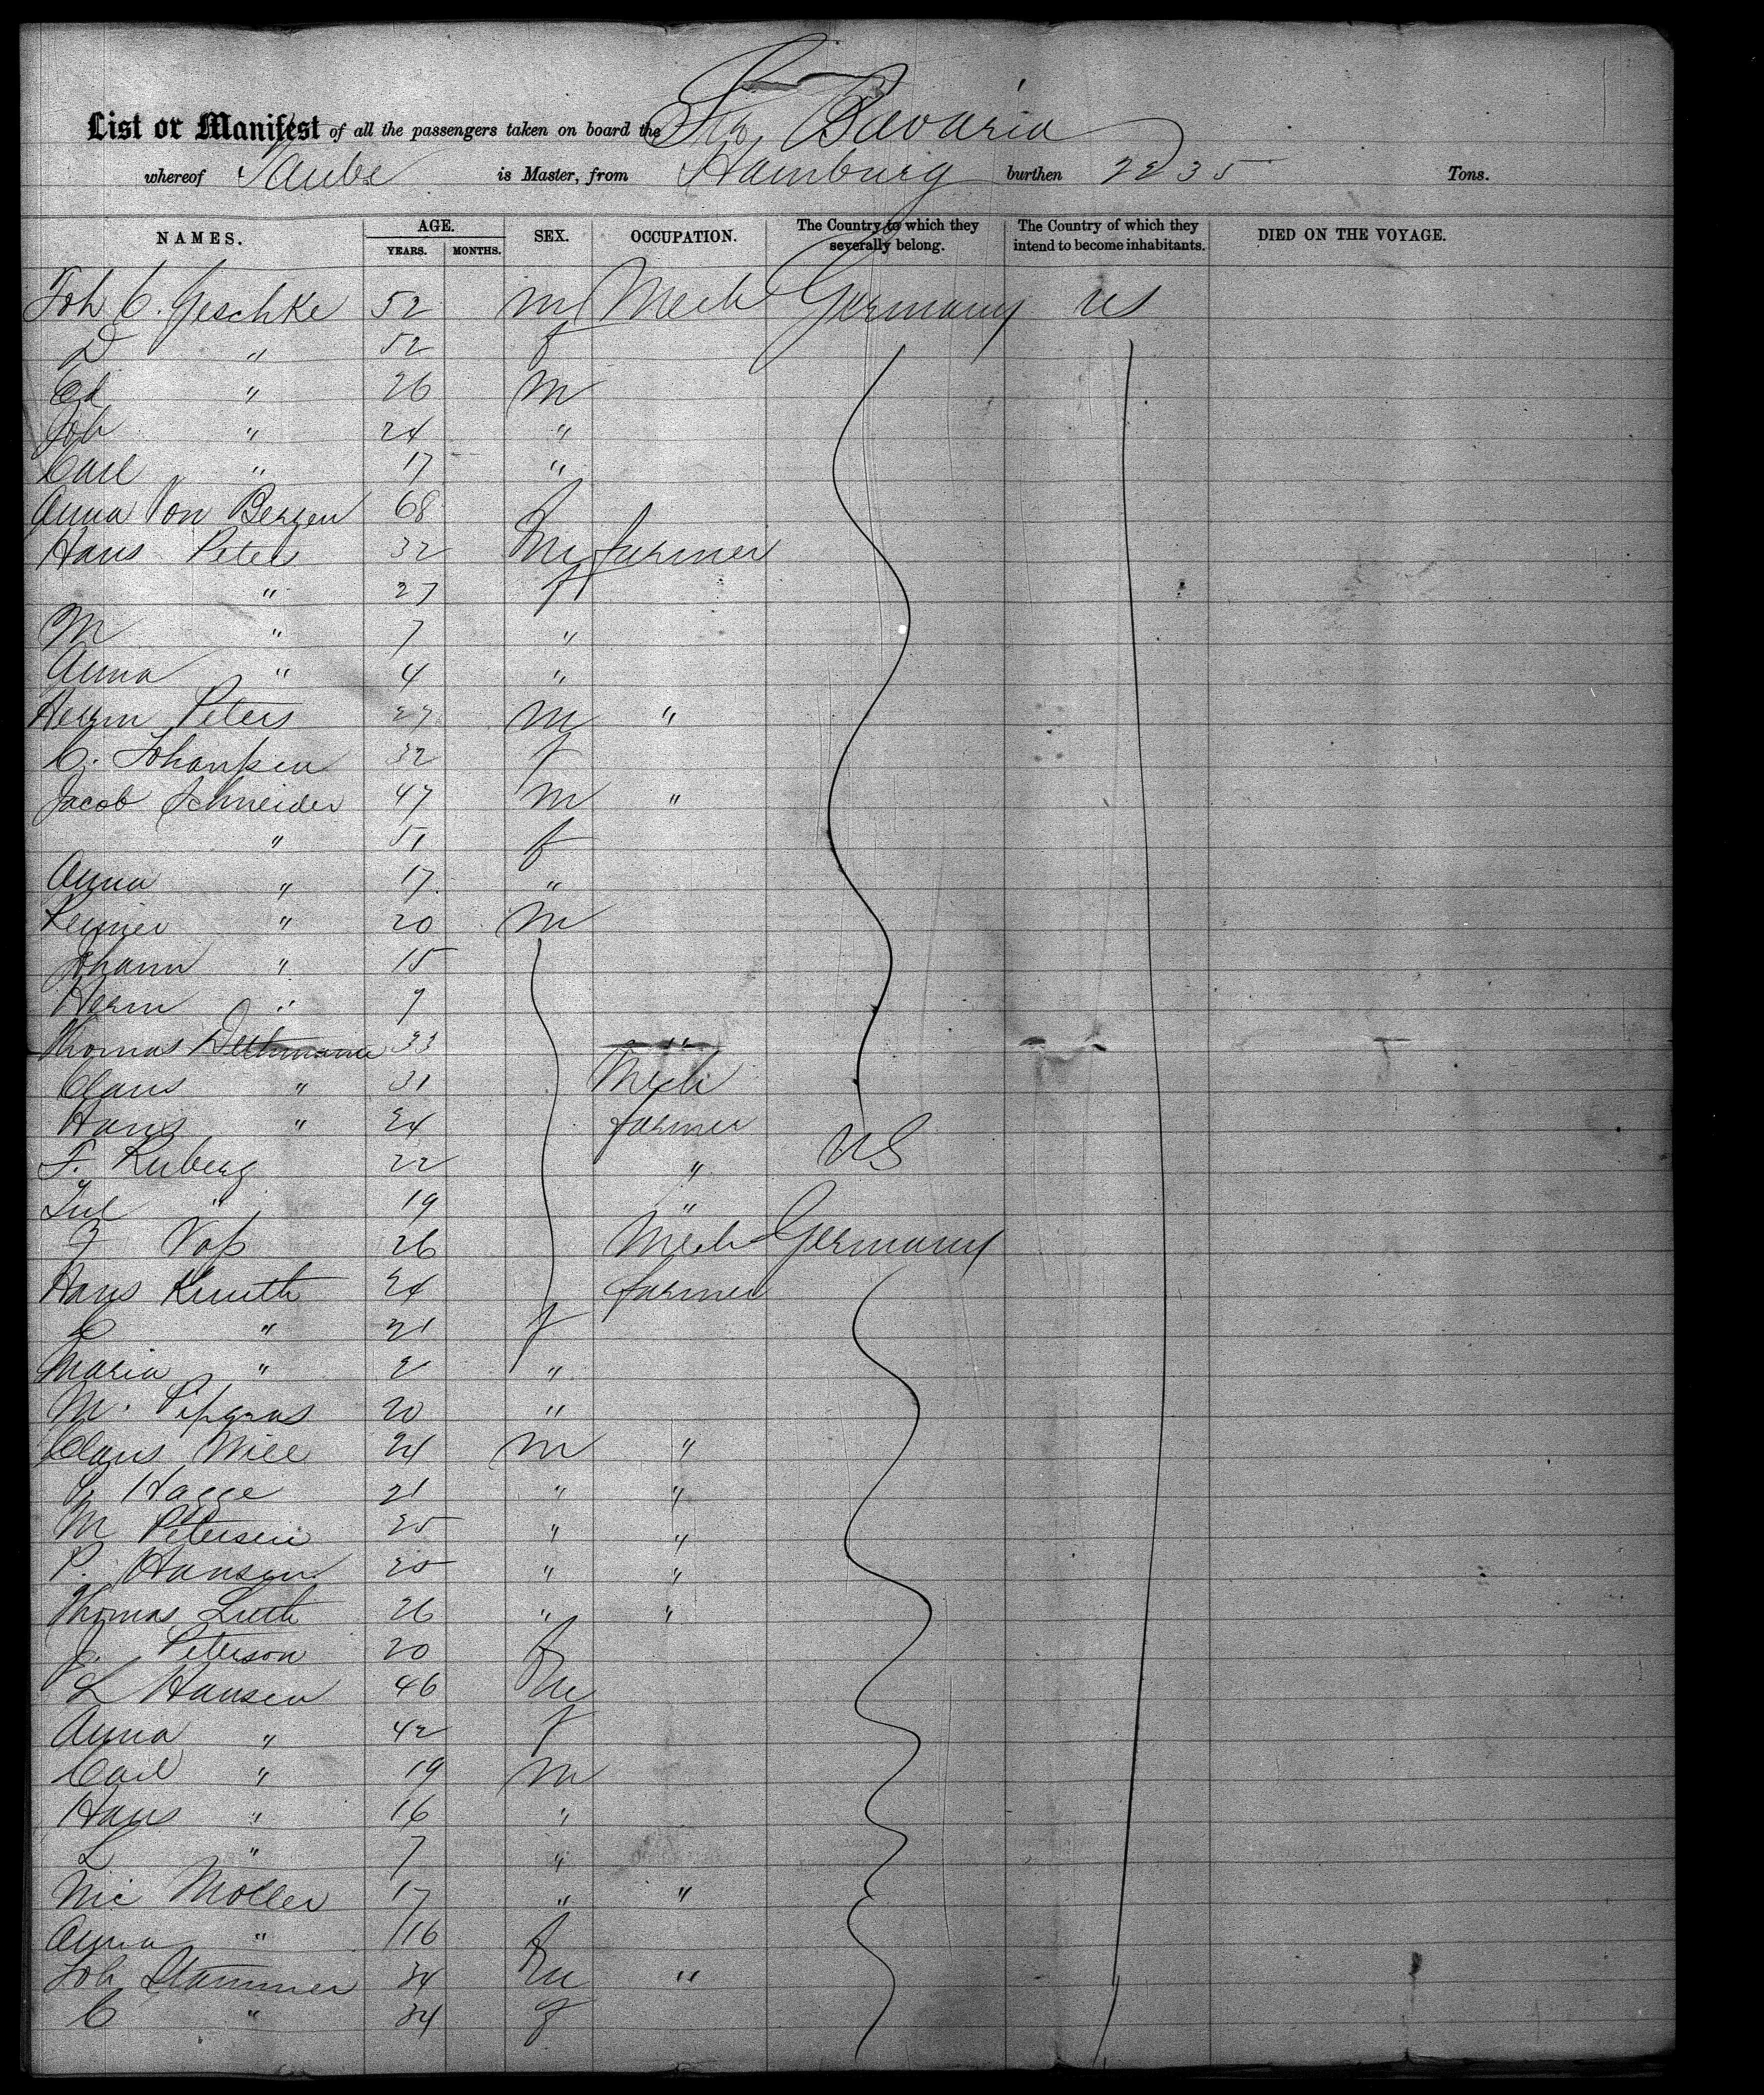 List or Manifest of all the passengers taken on board the Str. Bavaria
whereof Taube is Master, from Hamburg burthen 2235 Tons.
NAMES. AGE. YEARS. MONTHS. SEX. OCCUPATION. The Country to which they severally belong. The Country of which they intend to become inhabitants. DIED ON THE VOYAGE.
Joh C. Geschke 52 m Mech Germany US
D " 52 f
Ed " 26 m
Joh " 24 "
Carl " 17 "
Anna Von Bergen 68 f
Hans Peter 32 m farmer
" 27 f
M " 7 "
Anna " 4 "
Herrm Peters 27 m "
C. Johanßen 32 f
Jacob Schneider 47 m "
" 51 f
Anna " 17 "
Reimer " 20 m
Johann " 15
Herm " 9
Thomas Dethmann 33 "
Claus " 31 Mech
Hans " 24 farmer
F. Ruberg 22 " US
Jul " 19 "
F Voß 26 Mech Germany
Hans Knuth 24 farmer
C " 21 f
Maria " 2 "
M. Pipgras 20 "
Claus Wiee 24 m "
Hagge 21 " "
M Petersen 25 " "
P. Hansen 20 " "
Thomas Lueth 26 " "
J. Peterson 20 f
L Hansen 46 m
Anna " 42 f
Carl " 19 m
Hans " 16 "
L " 7 "
Nic Moller 17 " "
Anna " 16 f
Joh Stammer 34 m "
C " 34 f